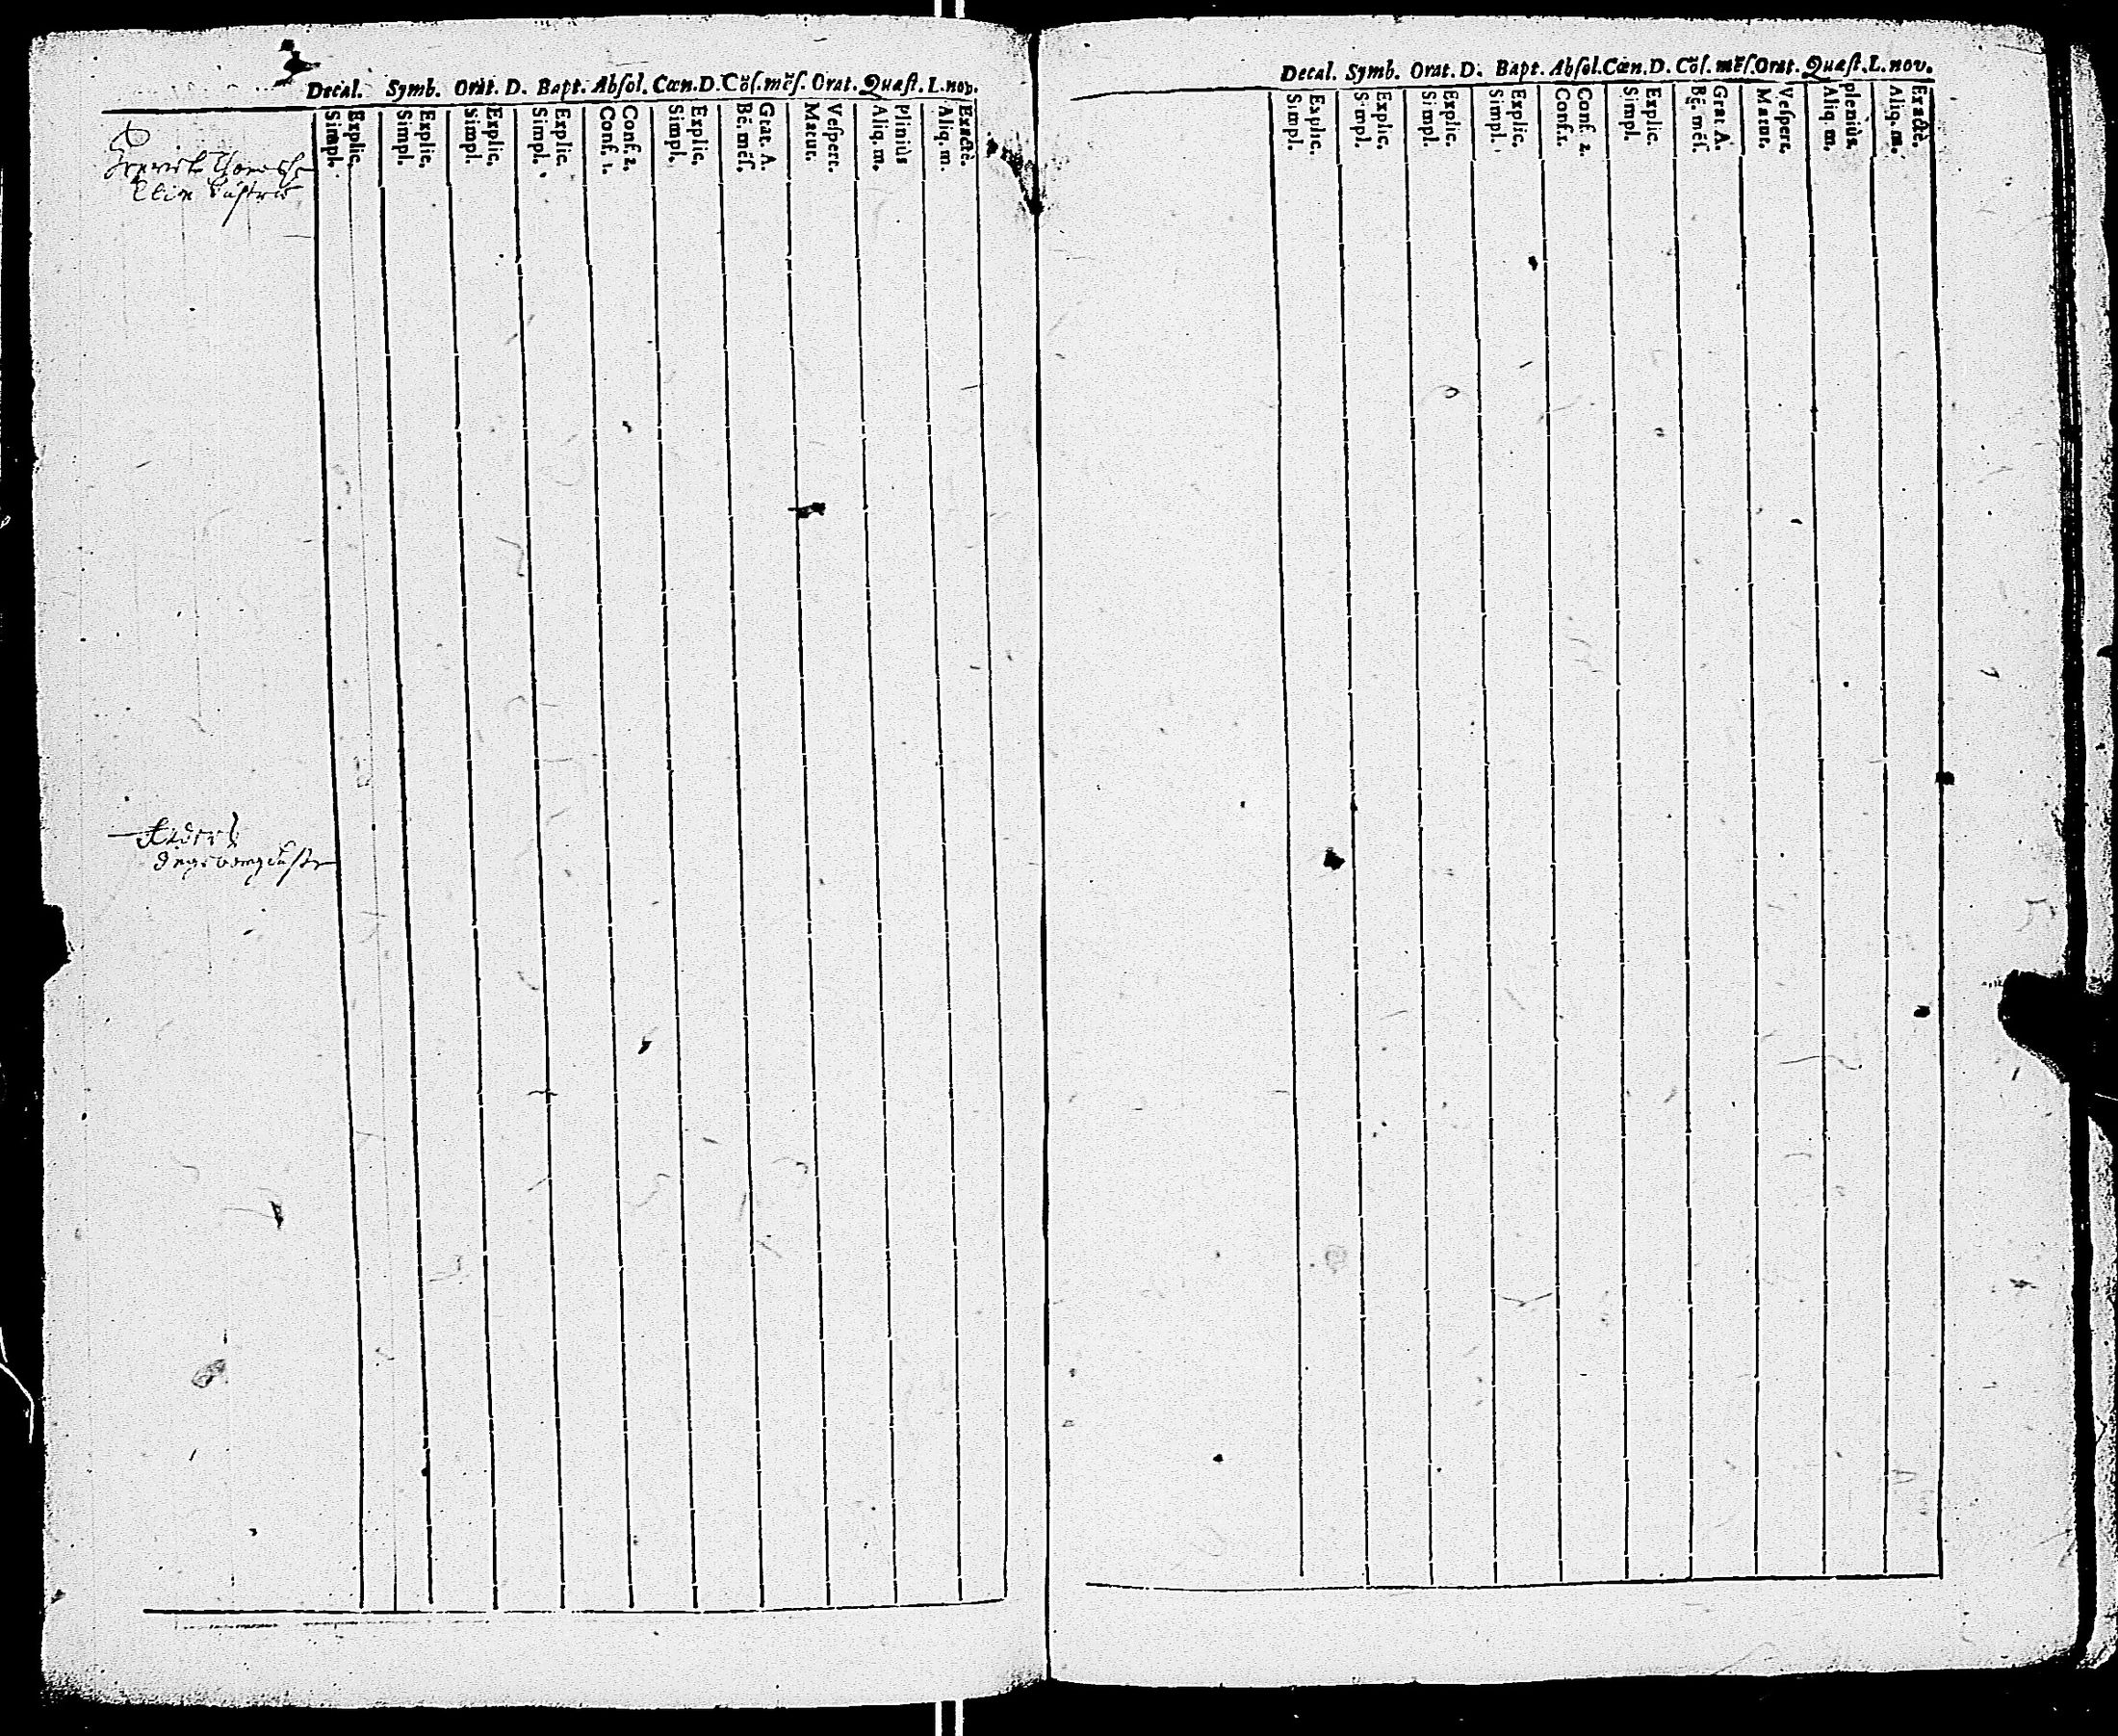 Decal. Symb. Orat. D. Bapt. Abſol. Cœn. D. Cõſ. mẽſ. Orat. Quæſt. L. nov.
Simpl. Explic. Simpl. Explic. Simpl. Explic. Simpl. Explic. Conf. 1. Conf. 2. Simpl. Explic. Bẽ. mẽſ. Grat. A. Matut. Veſpert. Aliq. m. Pleniùs Aliq. m. Exactè.
Decal. Symb. Orat. D. Bapt. Abſol. Cœn. D. Cõſ. mẽſ. Orat. Quæſt. L. nov.
Simpl. Explic. Simpl. Explic. Simpl. Explic. Simpl. Explic. Conf. 1. Conf. 2. Simpl. Explic. Bẽ. mẽſ. Grat A. Matut. Veſpert. Aliq. m. pleniùs Aliq. m. Exactè.